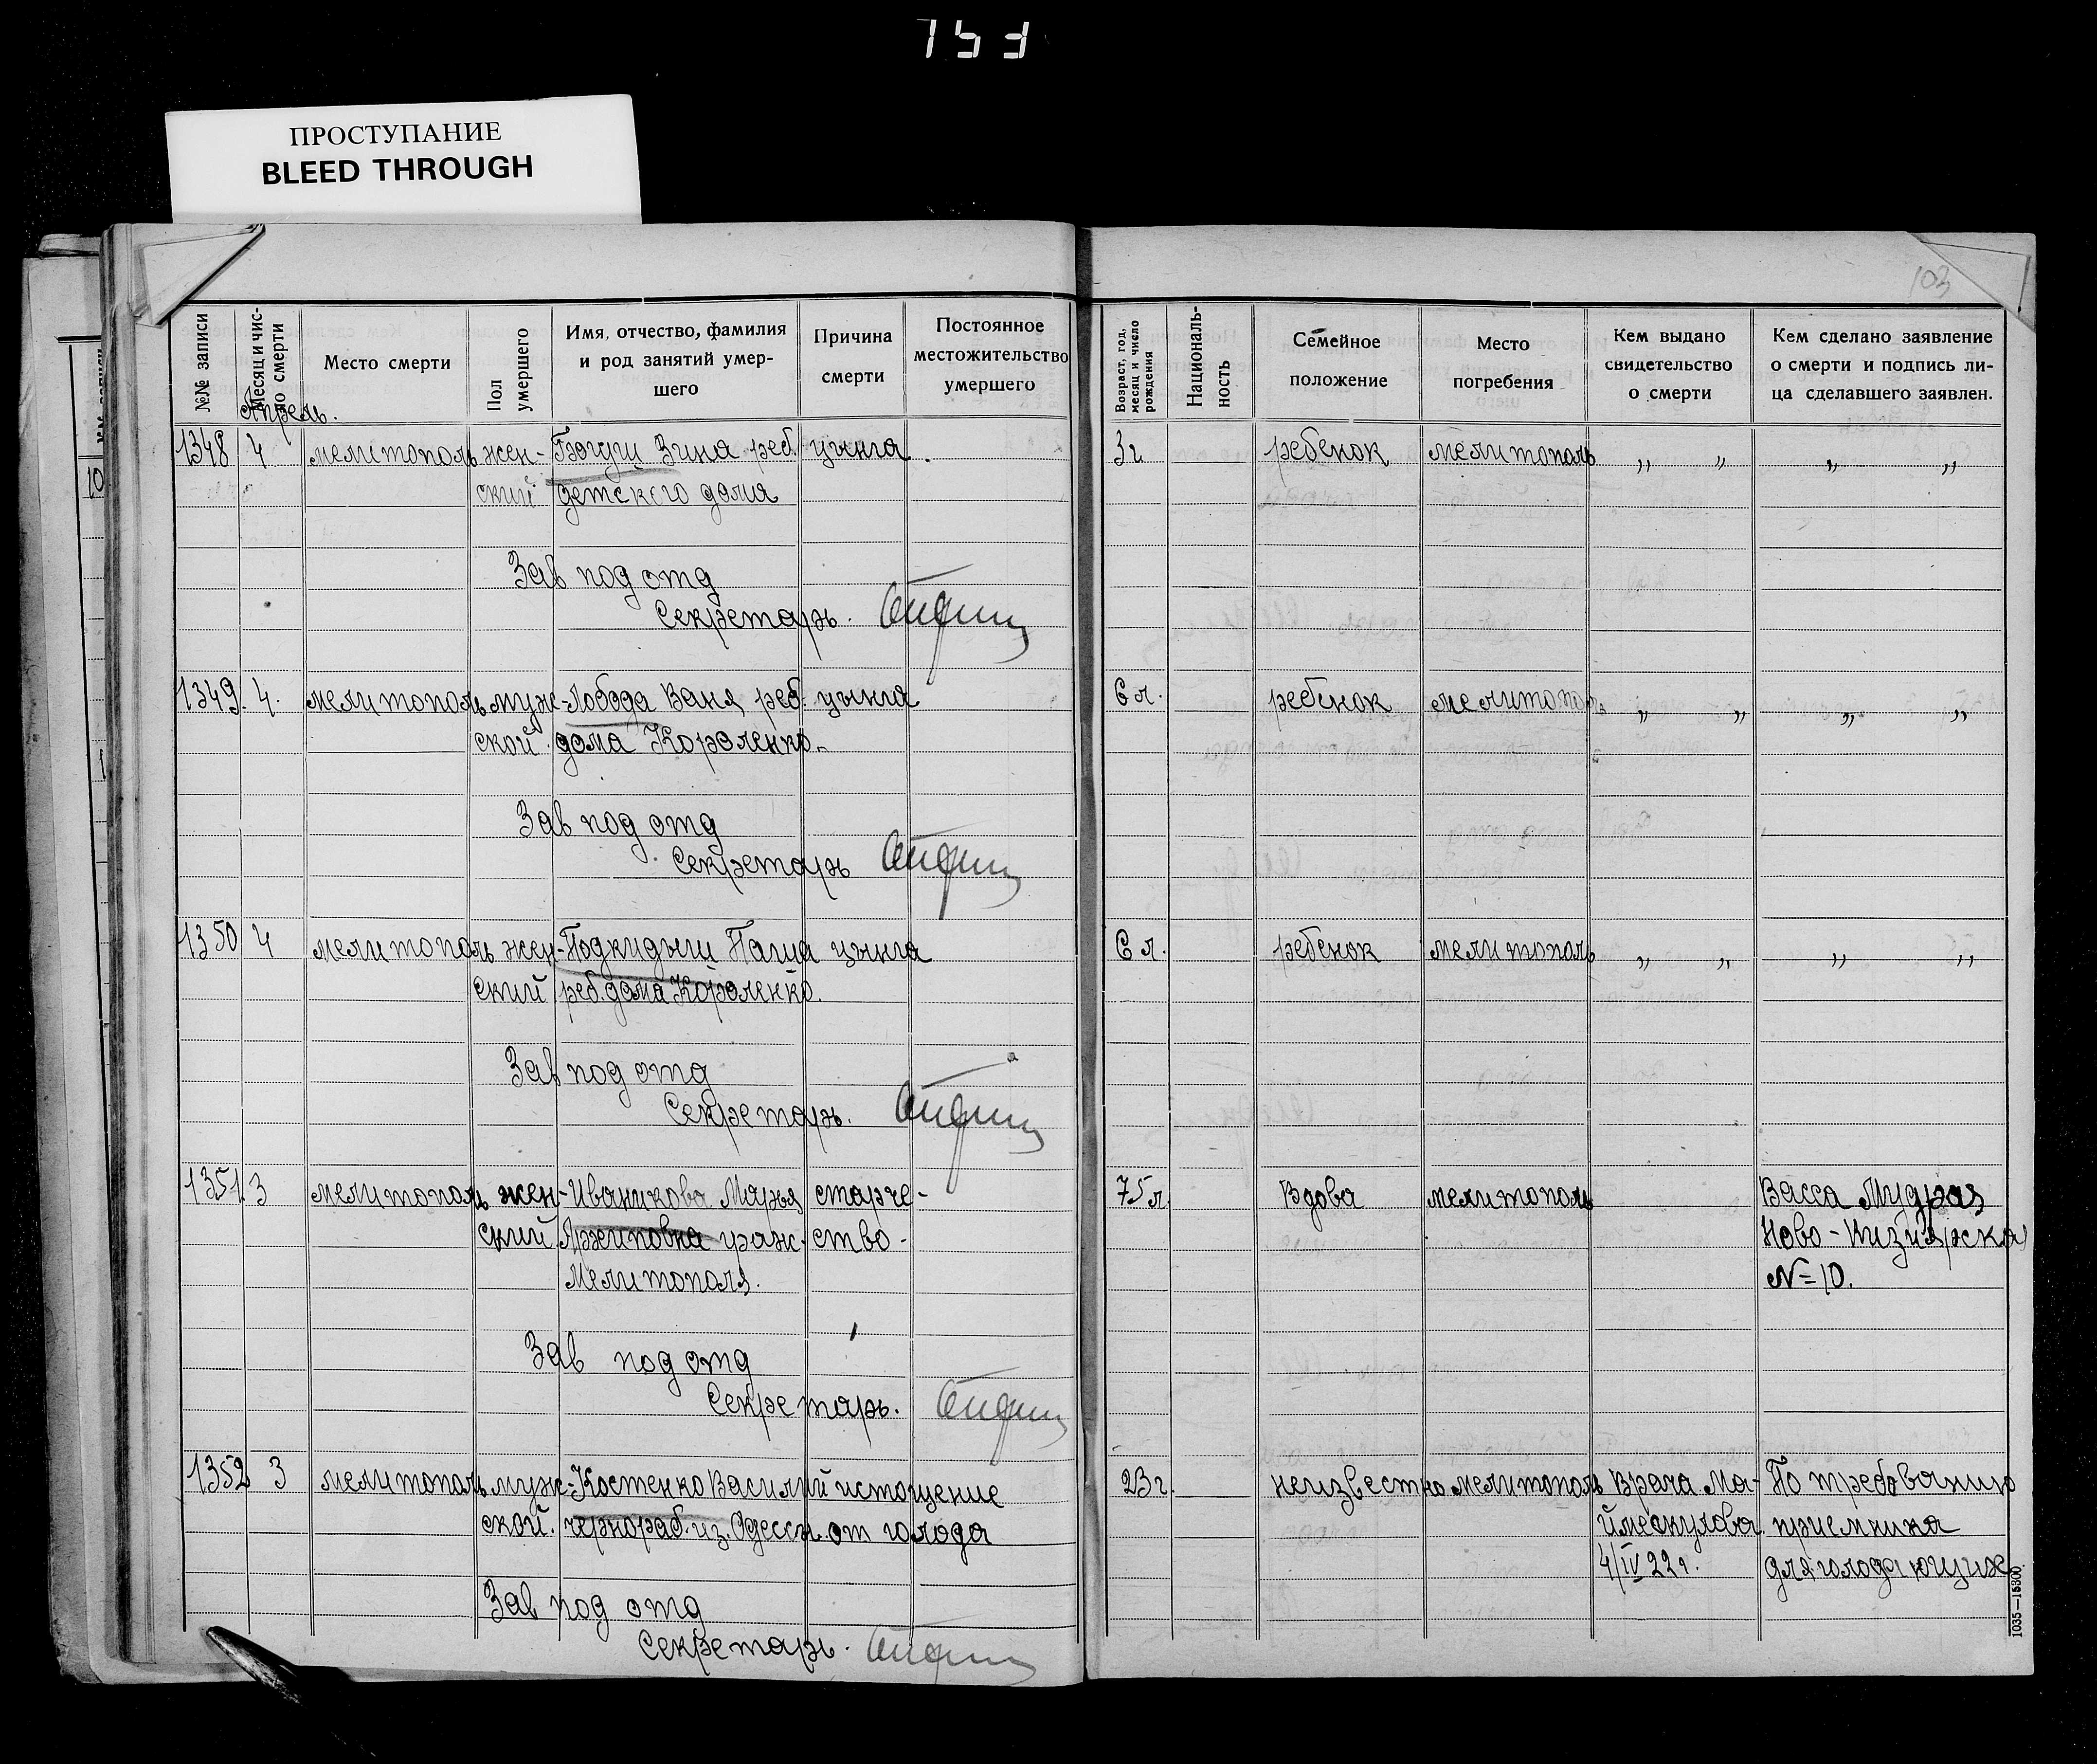 ПРОСТУПАНИЕ
BLEED THROUGH
103
№№ записи
Месяц и чис-
ло смерти
Место смерти
Пол
умершего
Имя, отчество, фамилия
и род занятий умер-
шего
Причина
смерти
Постоянное
местожительство
умершего
Возраст, год,
месяц и число
рождения
Националь-
ность
Семейное
положение
Место
погребения
Кем выдано
свидетельство
о смерти
Кем сделано заявление
о смерти и подпись ли-
ца сделавшего заявлен.
Апрель.
1348 4 мелитополь жен- Богуш Зина реб. цынга. 3 г. ребенок мелитополь „ „ „ „
ский детского дома
Зав под отд
Секретарь.
1349. 4. мелитополь муж- Лобода Ваня, реб. цынга 6 л. ребенок мелитополь „ „ „ „
ской. дома Короленко.
Зав под отд
Секретарь
1350 4 мелитополь жен- Подкидыш Паша цынга 6 л. ребенок мелитополь „ „ „ „
ский реб. дома Короленко.
Зав под отд
Секретарь.
1351 3 мелитополь жен- Иваникова Марья старче- 75 л Вдова мелитополь Васса Мудрая
ский Архиповна урож. ство- Ново-Кизиярская
Мелитополя. №=10.
Зав под отд
Секретарь.
1352 3 мелитополь муж- Костенко Василий истощение 23 г. неизвестно мелитополь Врача Ма- По требованию
ской. чернораб. из. Одессы. от голода приемника
4/IV 22 г. для голодающих
Зав под отд
Секретарь.
1035—15800